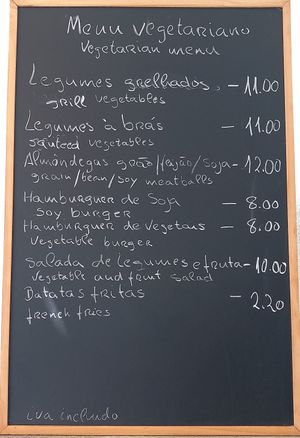 Menu vegetariano
Vegetarian menu
Legumes grelhados - 11.00
grill vegetables
Legumes à brás - 11.00
sauteed vegetables
Almôndegas grão/feijão/soja - 12.00
grain/bean/soy meatballs
Hamburguer de Soja - 8.00
Soy burger
Hamburguer de vegetais - 8.00
Vegetable burger
Salada de Legumes e fruta - 10.00
Vegetable and fruit Salad
Batatas fritas - 2.20
french fries
iva incluído